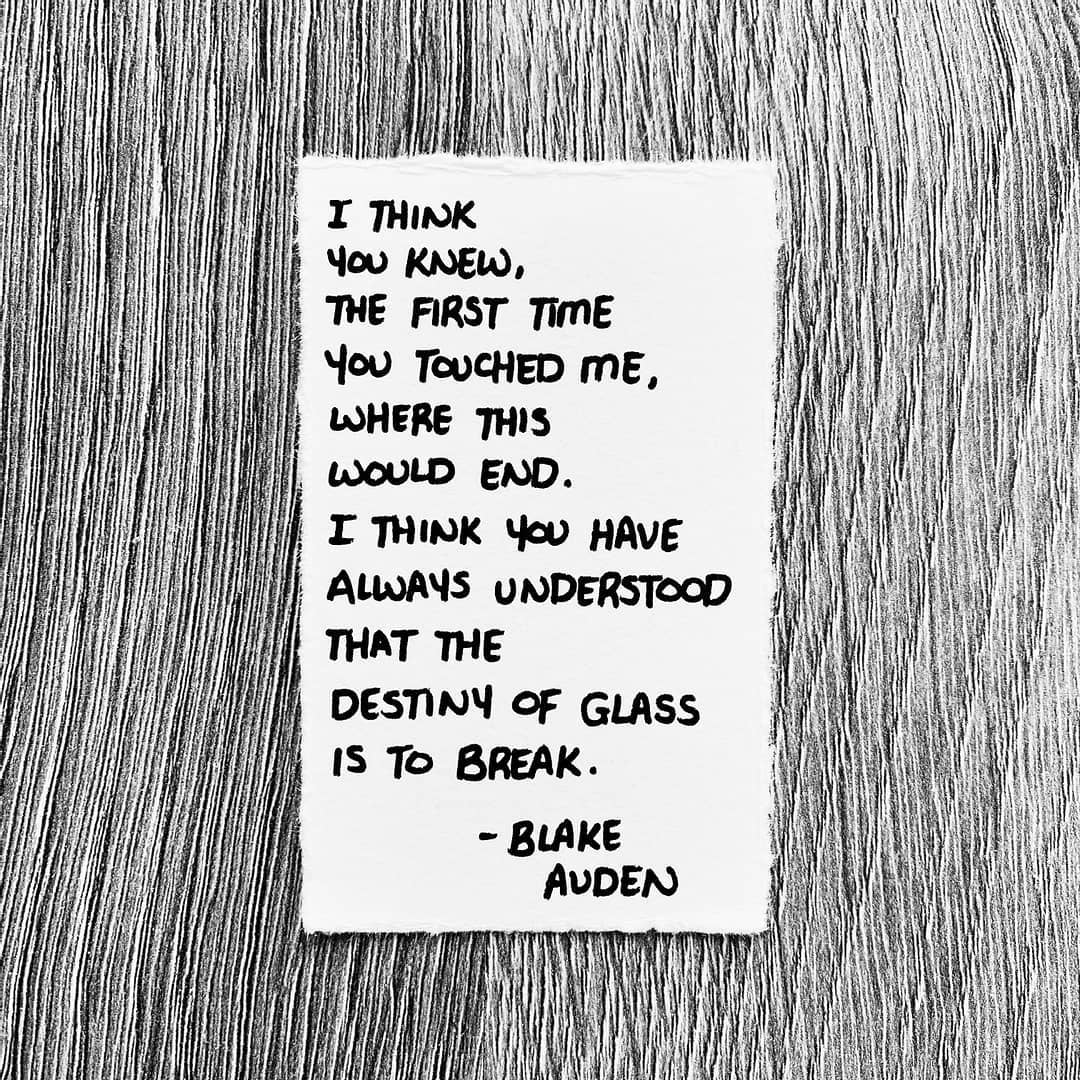 I THINK
YOU KNEW,
THE FIRST TIME
YOU TOUCHED ME,
WHERE THIS
WOULD END.
I THINK YOU HAVE
ALWAYS UNDERSTOOD
THAT THE
DESTINY OF GLASS
IS TO BREAK.
- BLAKE
AUDEN